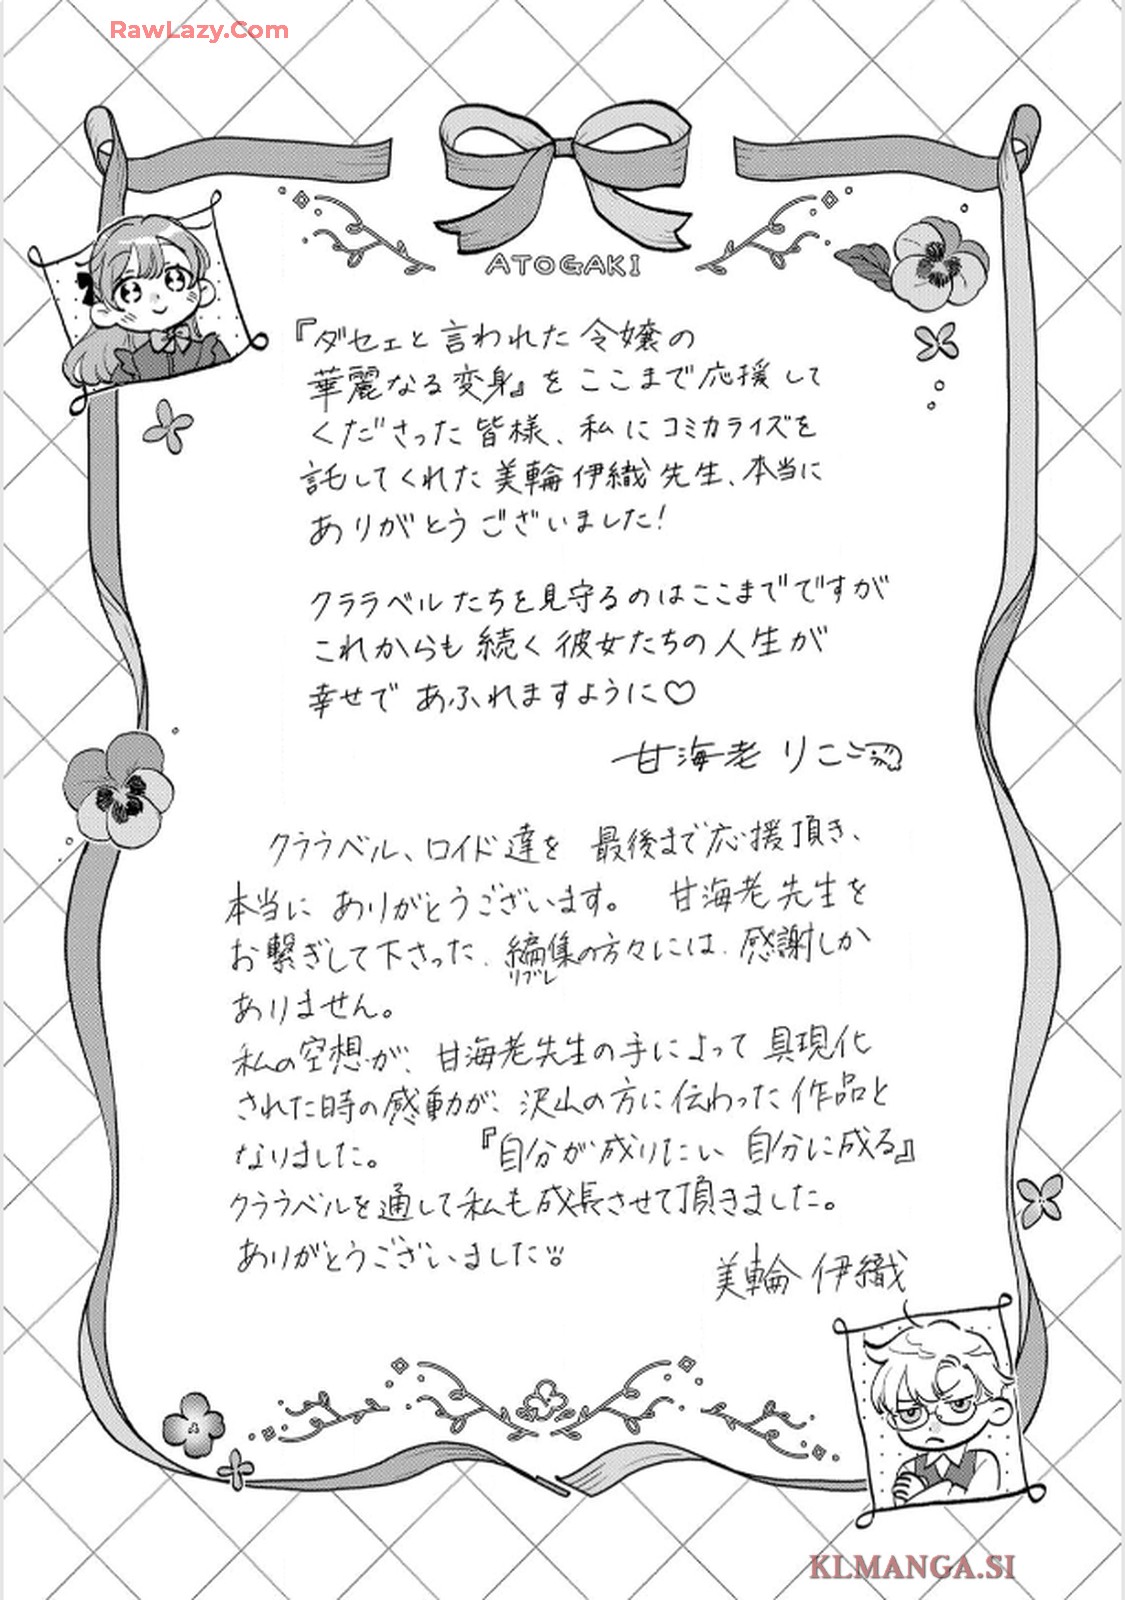 RawLazy.Com
ATOGAKI
『ダセェと言われた令嬢の
華麗なる変身』をここまで応援して
くださった皆様、私にコミカライズを
託してくれた美輪伊織先生、本当に
ありがとうございました!
クララベルたちを見守るのはここまでですが
これからも続く彼女たちの人生が
幸せであふれますように♡
甘海老りこ
クララベル、ロイド達を 最後まで応援頂き、
本当にありがとうございます。 甘海老先生を
お繋ぎして下さった、編集の方々には、感謝しか
リブレ
ありません。
私の空想が、甘海老先生の手によって具現化
された時の感動が、沢山の方に伝わった作品と
なりました。 『自分が成りたい 自分に成る』
クララベルを通して私も成長させて頂きました。
ありがとうございました!!
美輪伊織
KLMANGA.SI